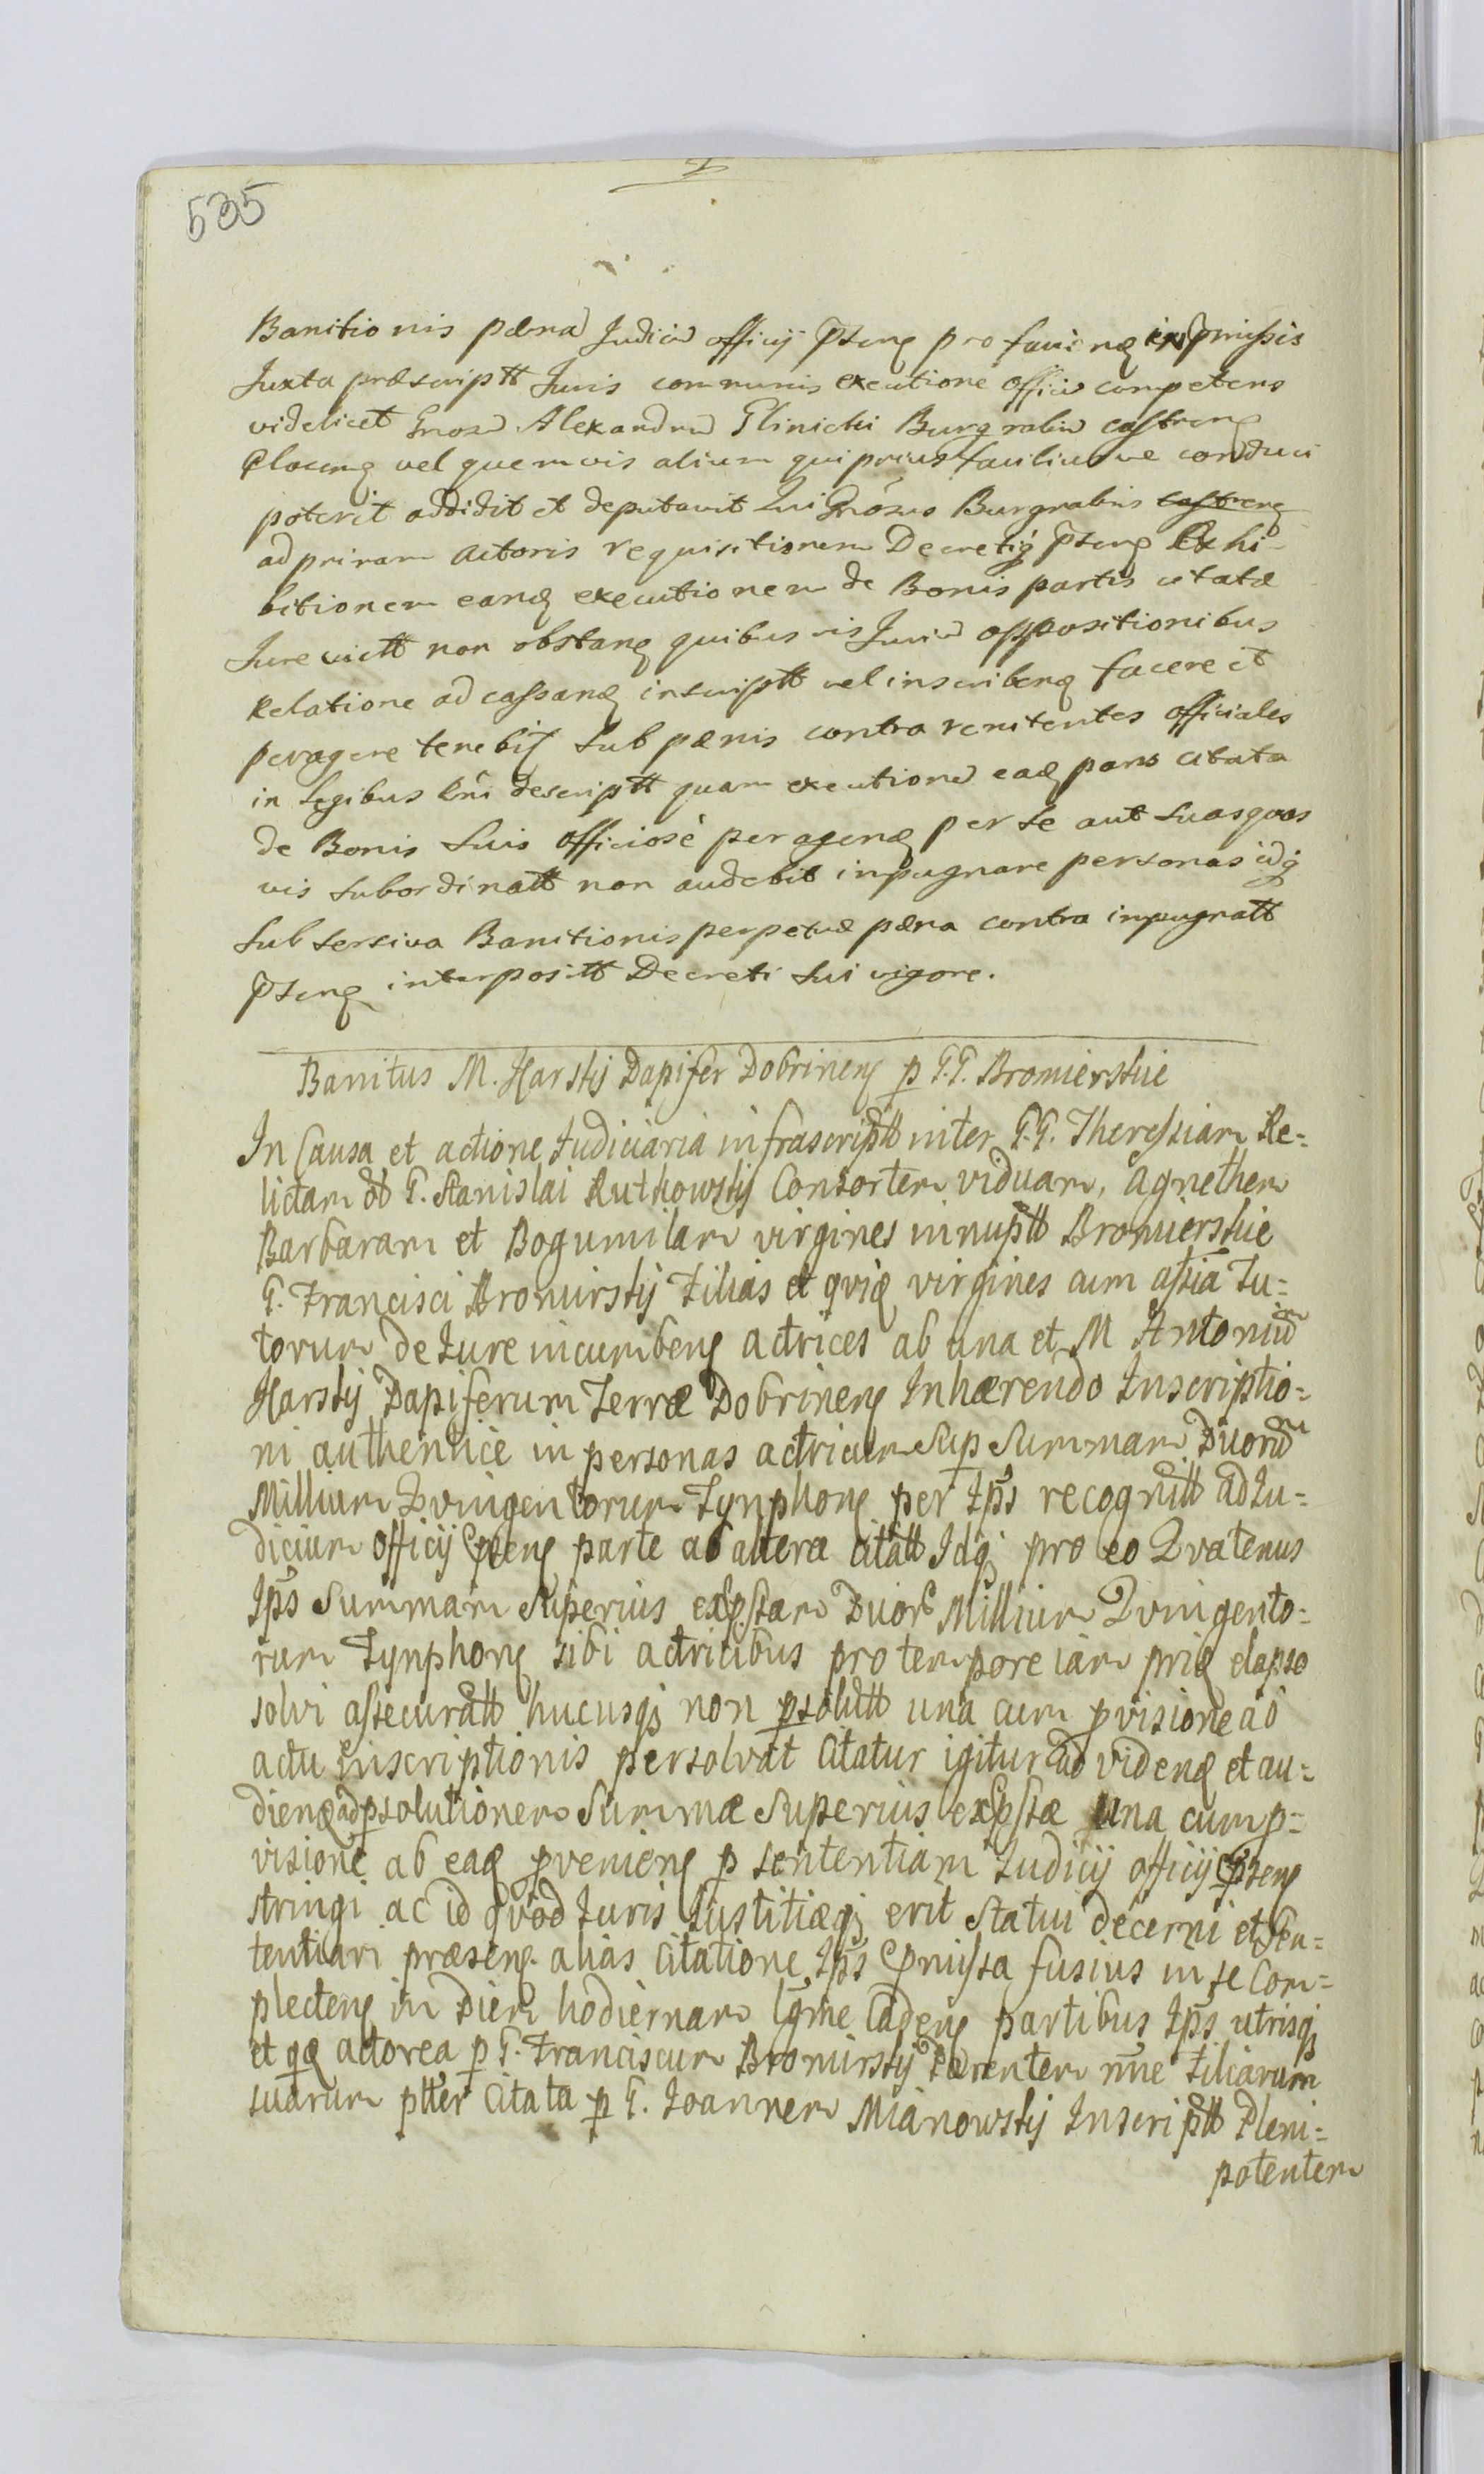 535
Banitionis pæna Judiciū officij p̄sens pro faciend in p̄missis
Juxta præscriptt Juris communis executione officiū competens
videlicet Gnosū Alexandrū Glinicki Burgrabiū castrens
Plocens vel quemvis alium qui prius faciliusve conduci
poterit addidit et deputavit Qui Gnosus Burgrabius castrens
ad primam Actoris requisitionem Decretiq p̄sens Exhi-
bitionem eand executionem de Bonis partis citatæ
Jure victt non obstans quibusvis Juriū oppositionibus
Relatione ad cassand inscriptt vel inscribend facere et
peragere tenebit Sub pænis contra renitentes officiales
in Legibus Rni descriptt quam executionē ead pars citata
de Bonis Suis officiosè peragend per se aut suas quas
vis subordinatt non audebit inpugnare personas idq
Sub sersiva Banitionis perpetuæ pæna contra inpugnatt
p̄sens interpositt Decreti sui vigore.
Banitus M. Karskij Dapifer Dobrinens p G.G. Bromierskie
In Causa et actione Judiciaria infrascriptt inter G.G. Theressiam Re=
lictam ol G. Stanislai Rutkowskij Consortem viduam, Agnethem
Barbaram et Bogumilam virgines innuptt Bromierskie
G. Francisci Bromirskij Filias et qvid virgines cum assia Tu=
torum de Jure incumbens actrices ab una et M Antoniūm
Karskij Dapiferum Terræ Dobrinens Inhærendo Inscriptio=
ni authentice in personas actricum Sup Summam Duorūm
Millium Qvingentorum Tynphons per Ips recognitt ad Ju=
dicium officij p̄sens parte ab altera citatt Idq pro eo Qvatenus
Ips Summam Superius exp̄stam Duor Millium Qvingento=
rum Tynphons sibi actricibus pro tempore iam prid elapso
solvi assecuratt hucusq non psolutt una cum pvisione ab
actu inscriptionis persolvat Citatur igitur ad videnď et au=
diend ad psolutionem Summæ Superius exp̄stæ una cum p=
visione ab ead pveniens p sententiam Judicij officij p̄sens
stringi ac id qvod Juris Justitiæq erit Statui decerni et Sen=
tentiari præsens alias Citatione Ips p̄missa fusius in se Com=
plectens in Diem hodiernam lgme Cadens partibus Ips utrisq
et qd actorea p G. Franciscum Bromirskij Parentem nne Filiarum
suarum ptter Citata p G. Joannem Mianowskij Inscriptt Pleni=
potentem